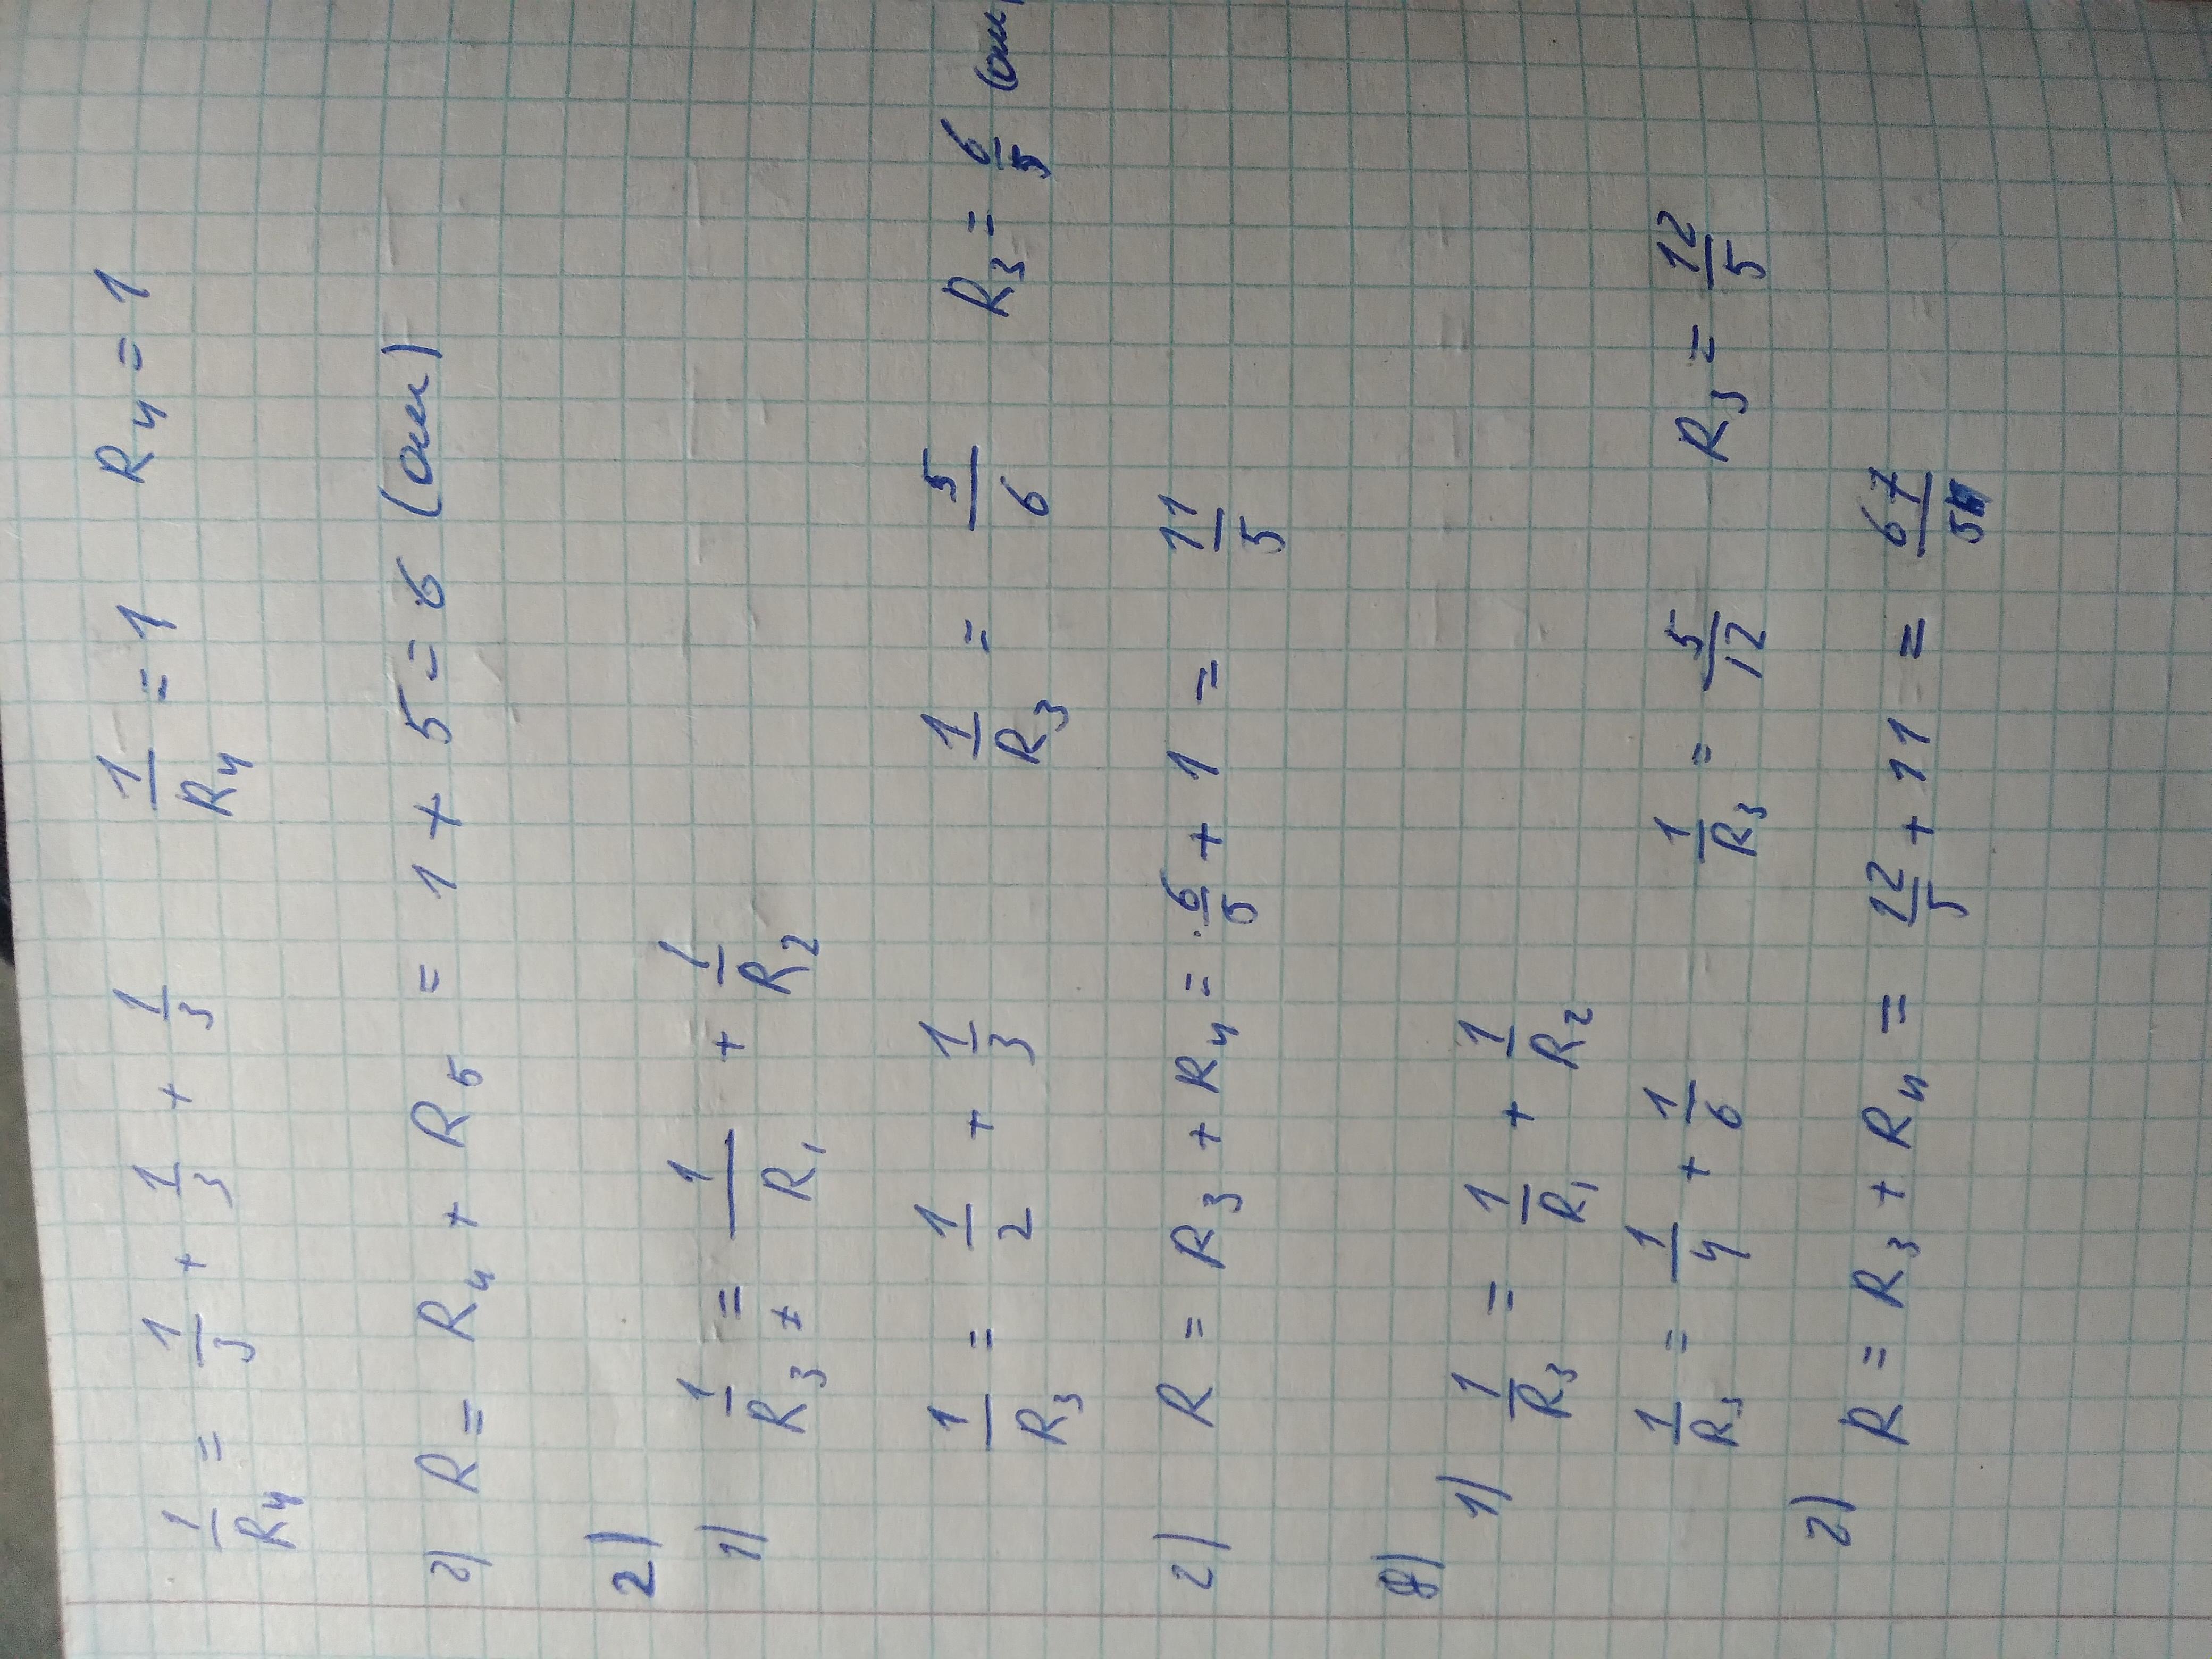 1/R4 = 1/3 + 1/3 + 1/3 1/R4 = 1 R4 = 1
2) R = R4 + R5 = 1 + 5 = 6 (ом)
2)
1) 1/R3 = 1/R1 + 1/R2
1/R3 = 1/2 + 1/3 1/R3 = 5/6 R3 = 6/5 (ом
2) R = R3 + R4 = 6/5 + 1 = 11/5
1) 1/R3 = 1/R1 + 1/R2
1/R3 = 1/4 + 1/6 1/R3 = 5/12 R3 = 12/5
2) R = R3 + R4 = 12/5 + 11 = 67/5